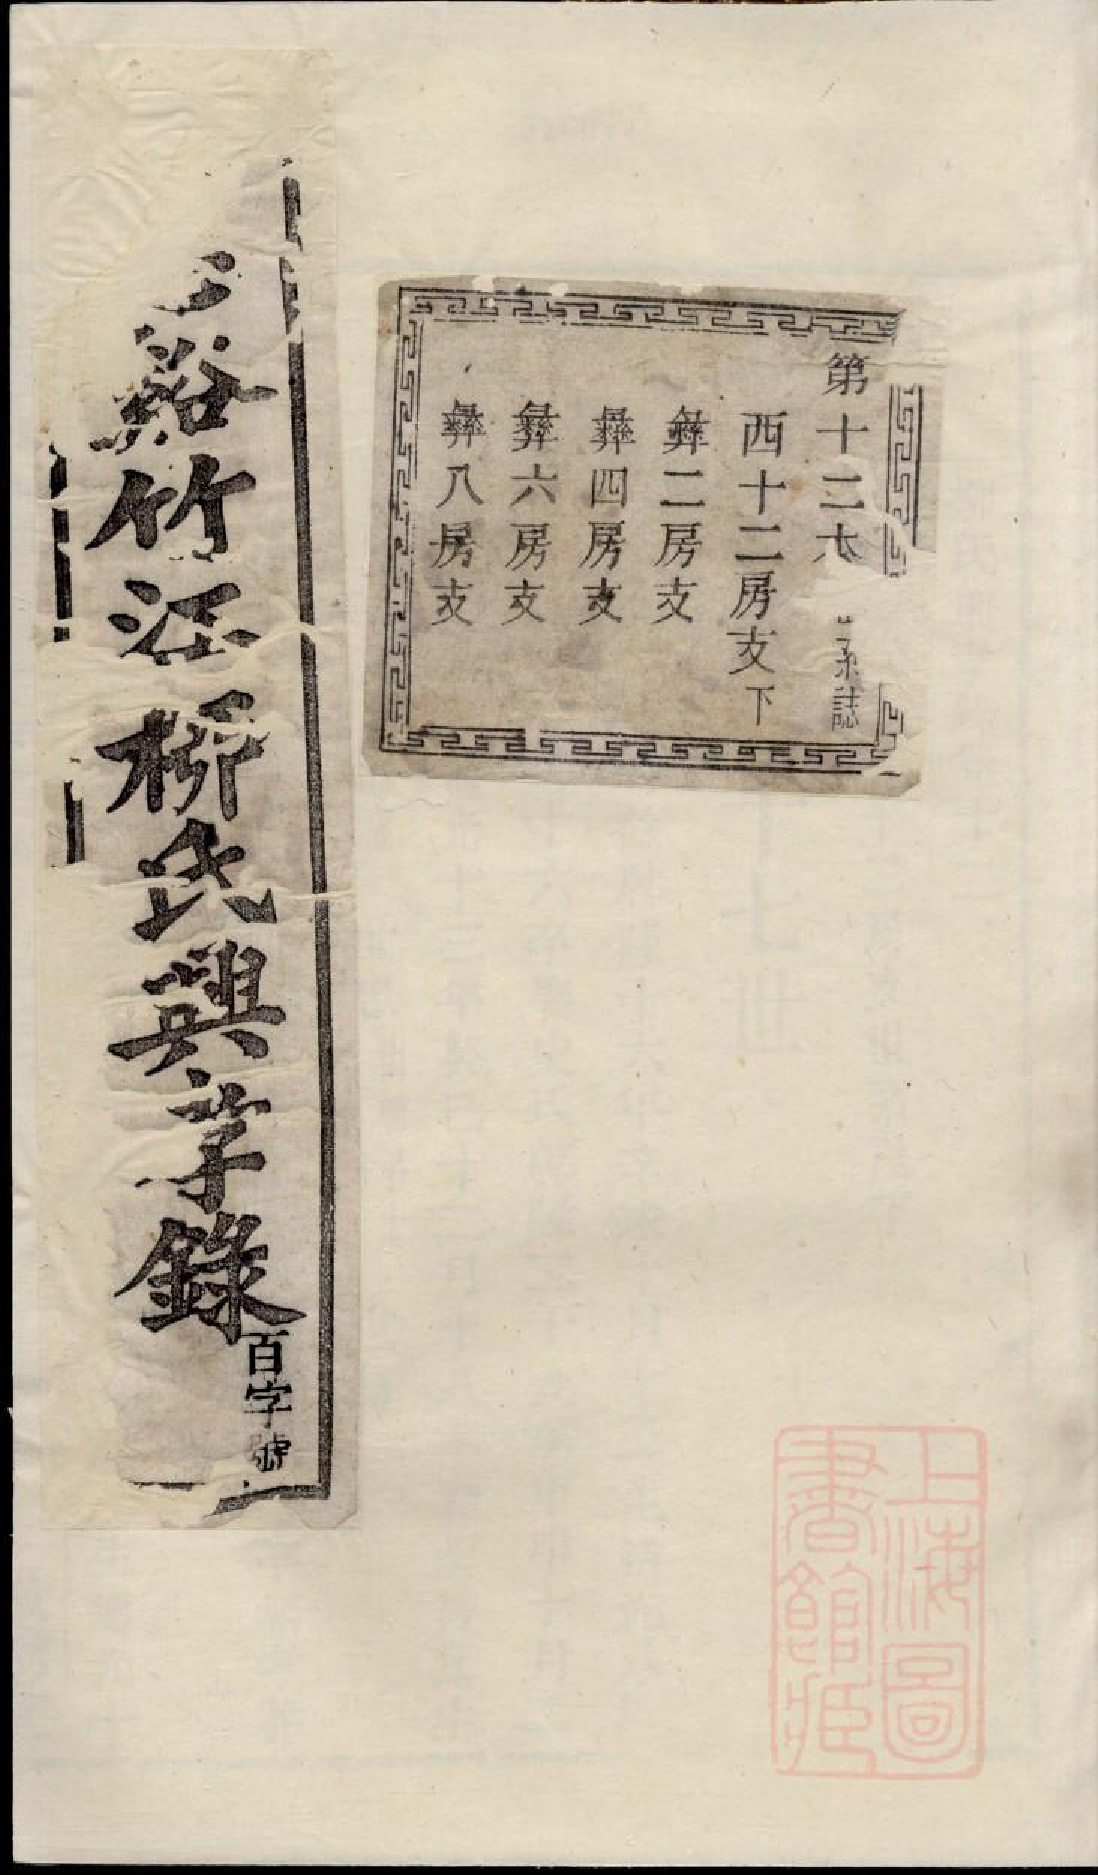 第十二大 系誌
西十二房支下
彝二房支
彝四房支
彝六房支
彝八房支
谿竹汪柳氏興孝錄
百字號
上海圖
書館臧